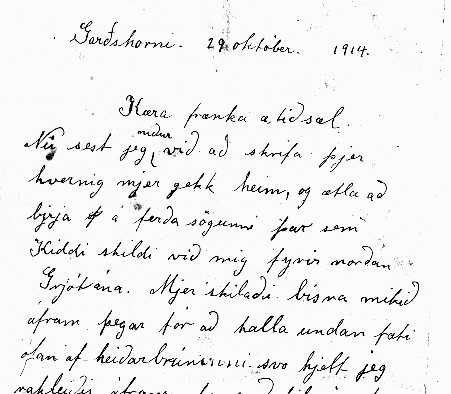 Garðshorni. 29 október. 1914.
Kæra frænka æ, tíð sæl.
Nú sest jeg niður við að skrifa þjer
hvernig mjer gekk heim, og ætla að
birja á ferða sögunni þar sem
Kiddi skildi við mig fyrir norðan
Grjótána. Mjer skilaði bísna mikið
áfram þegar fór að halla undan fæti
ofan af heiðarbrúninni svo hjelt jeg